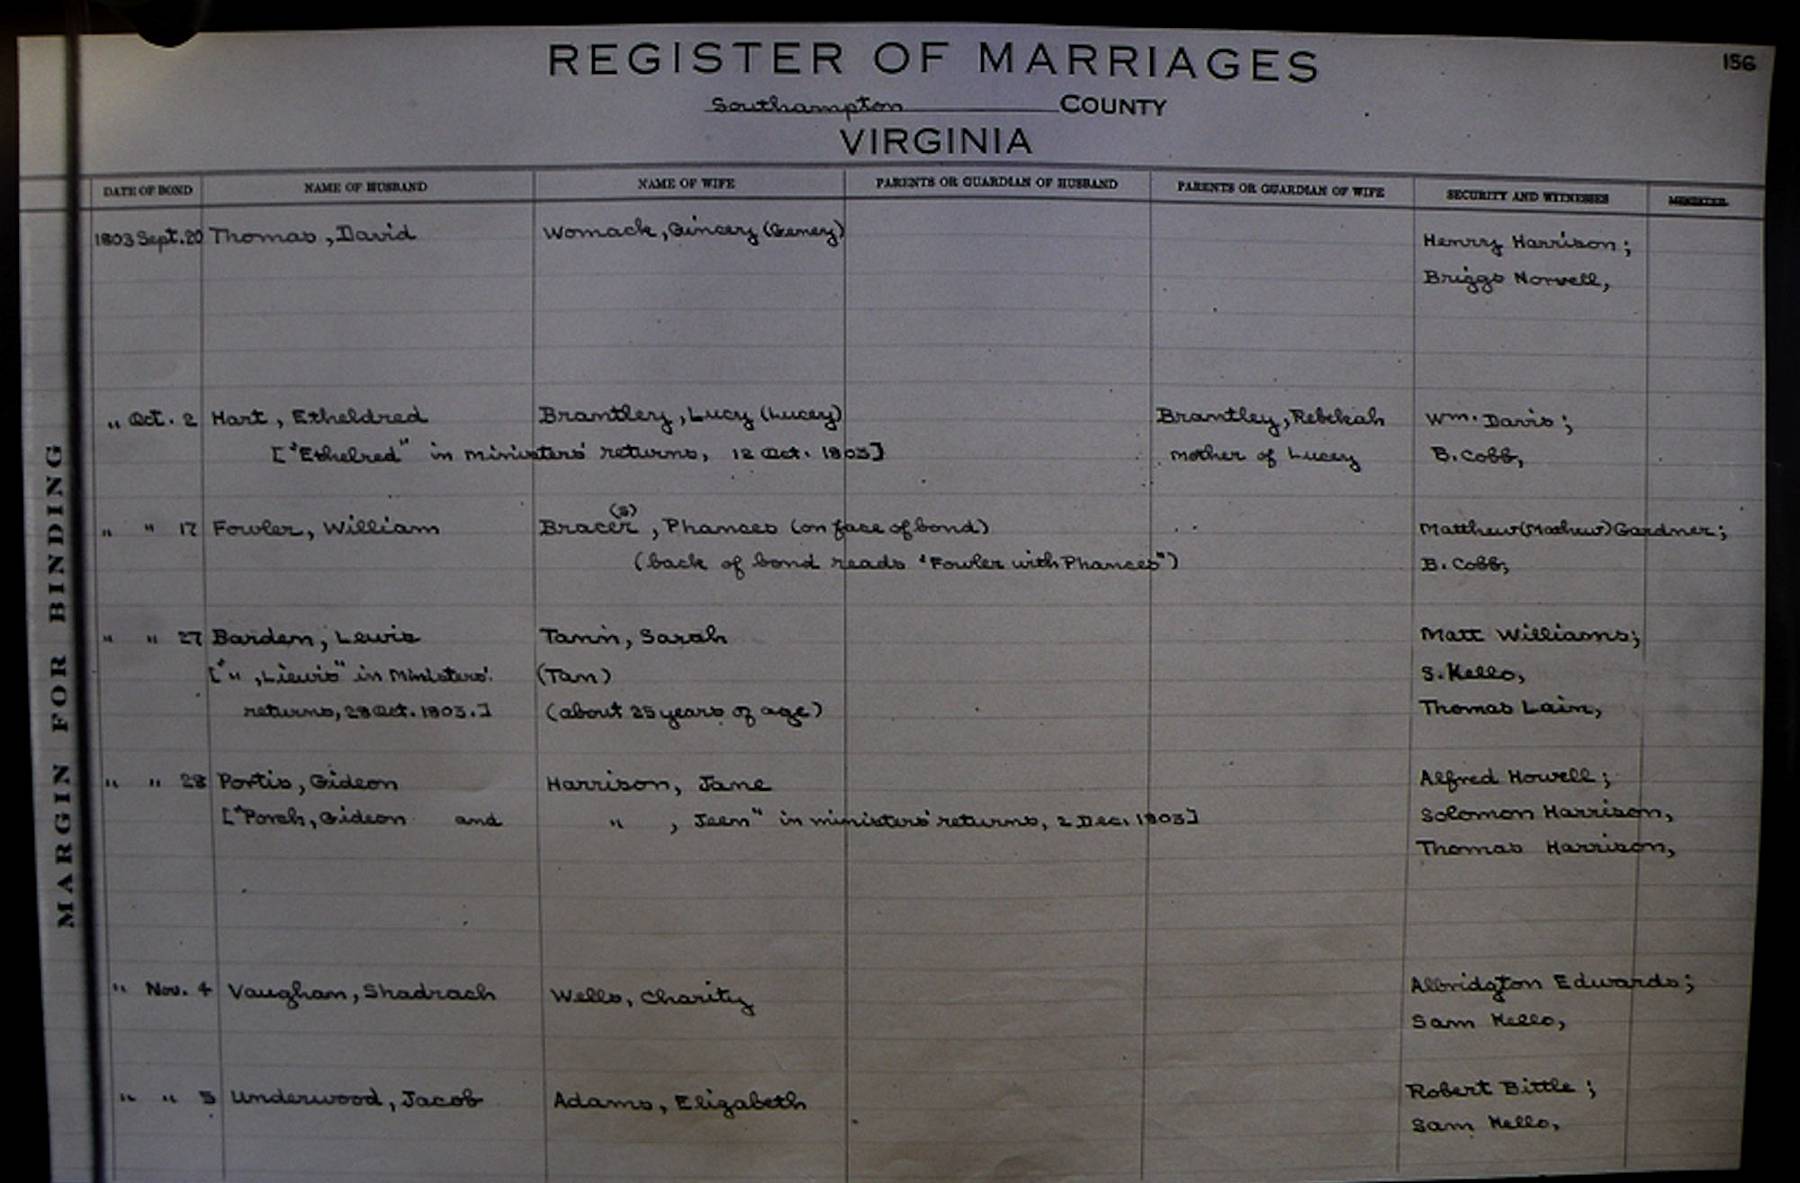 REGISTER OF MARRIAGES
156
Southampton COUNTY
VIRGINIA
DATE OF BOND NAME OF HUSBAND NAME OF WIFE PARENTS OR GUARDIAN OF HUSBAND PARENTS OR GUARDIAN OF WIFE SECURITY AND WITNESSES MINISTER
1803 Sept. 20 Thomas, David Womack, Gincey (Gencey) Henry Harrison;
Briggs Norvell,
" Oct. 2 Hart, Etheldred Brantley, Lucy (Lucey) Brantley, Rebekah Wm. Davis;
["Ethelred" in ministers' returns, 12 Oct. 1803] mother of Lucey B. Cobb,
(s)
" " 17 Fowler, William Bracer, Phances (on face of bond) Matthew (Mathew) Gardner;
(back of bond reads "Fowler with Phances") B. Cobb,
" " 27 Barden, Lewis Tann, Sarah Matt Williams;
[" " , Liewis" in Ministers' (Tan) S. Kello,
returns, 28 Oct. 1803.] (about 25 years of age) Thomas Lain,
" " 28 Portis, Gideon Harrison, Jane Alfred Howell;
["Porch, Gideon and " , Jeen" in ministers' returns, 2 Dec. 1803] Solomon Harrison,
Thomas Harrison,
" Nov. 4 Vaughan, Shadrach Wells, Charity Albridgton Edwards;
Sam Kello,
" " 5 Underwood, Jacob Adams, Elizabeth Robert Bittle;
Sam Kello,
MARGIN FOR BINDING